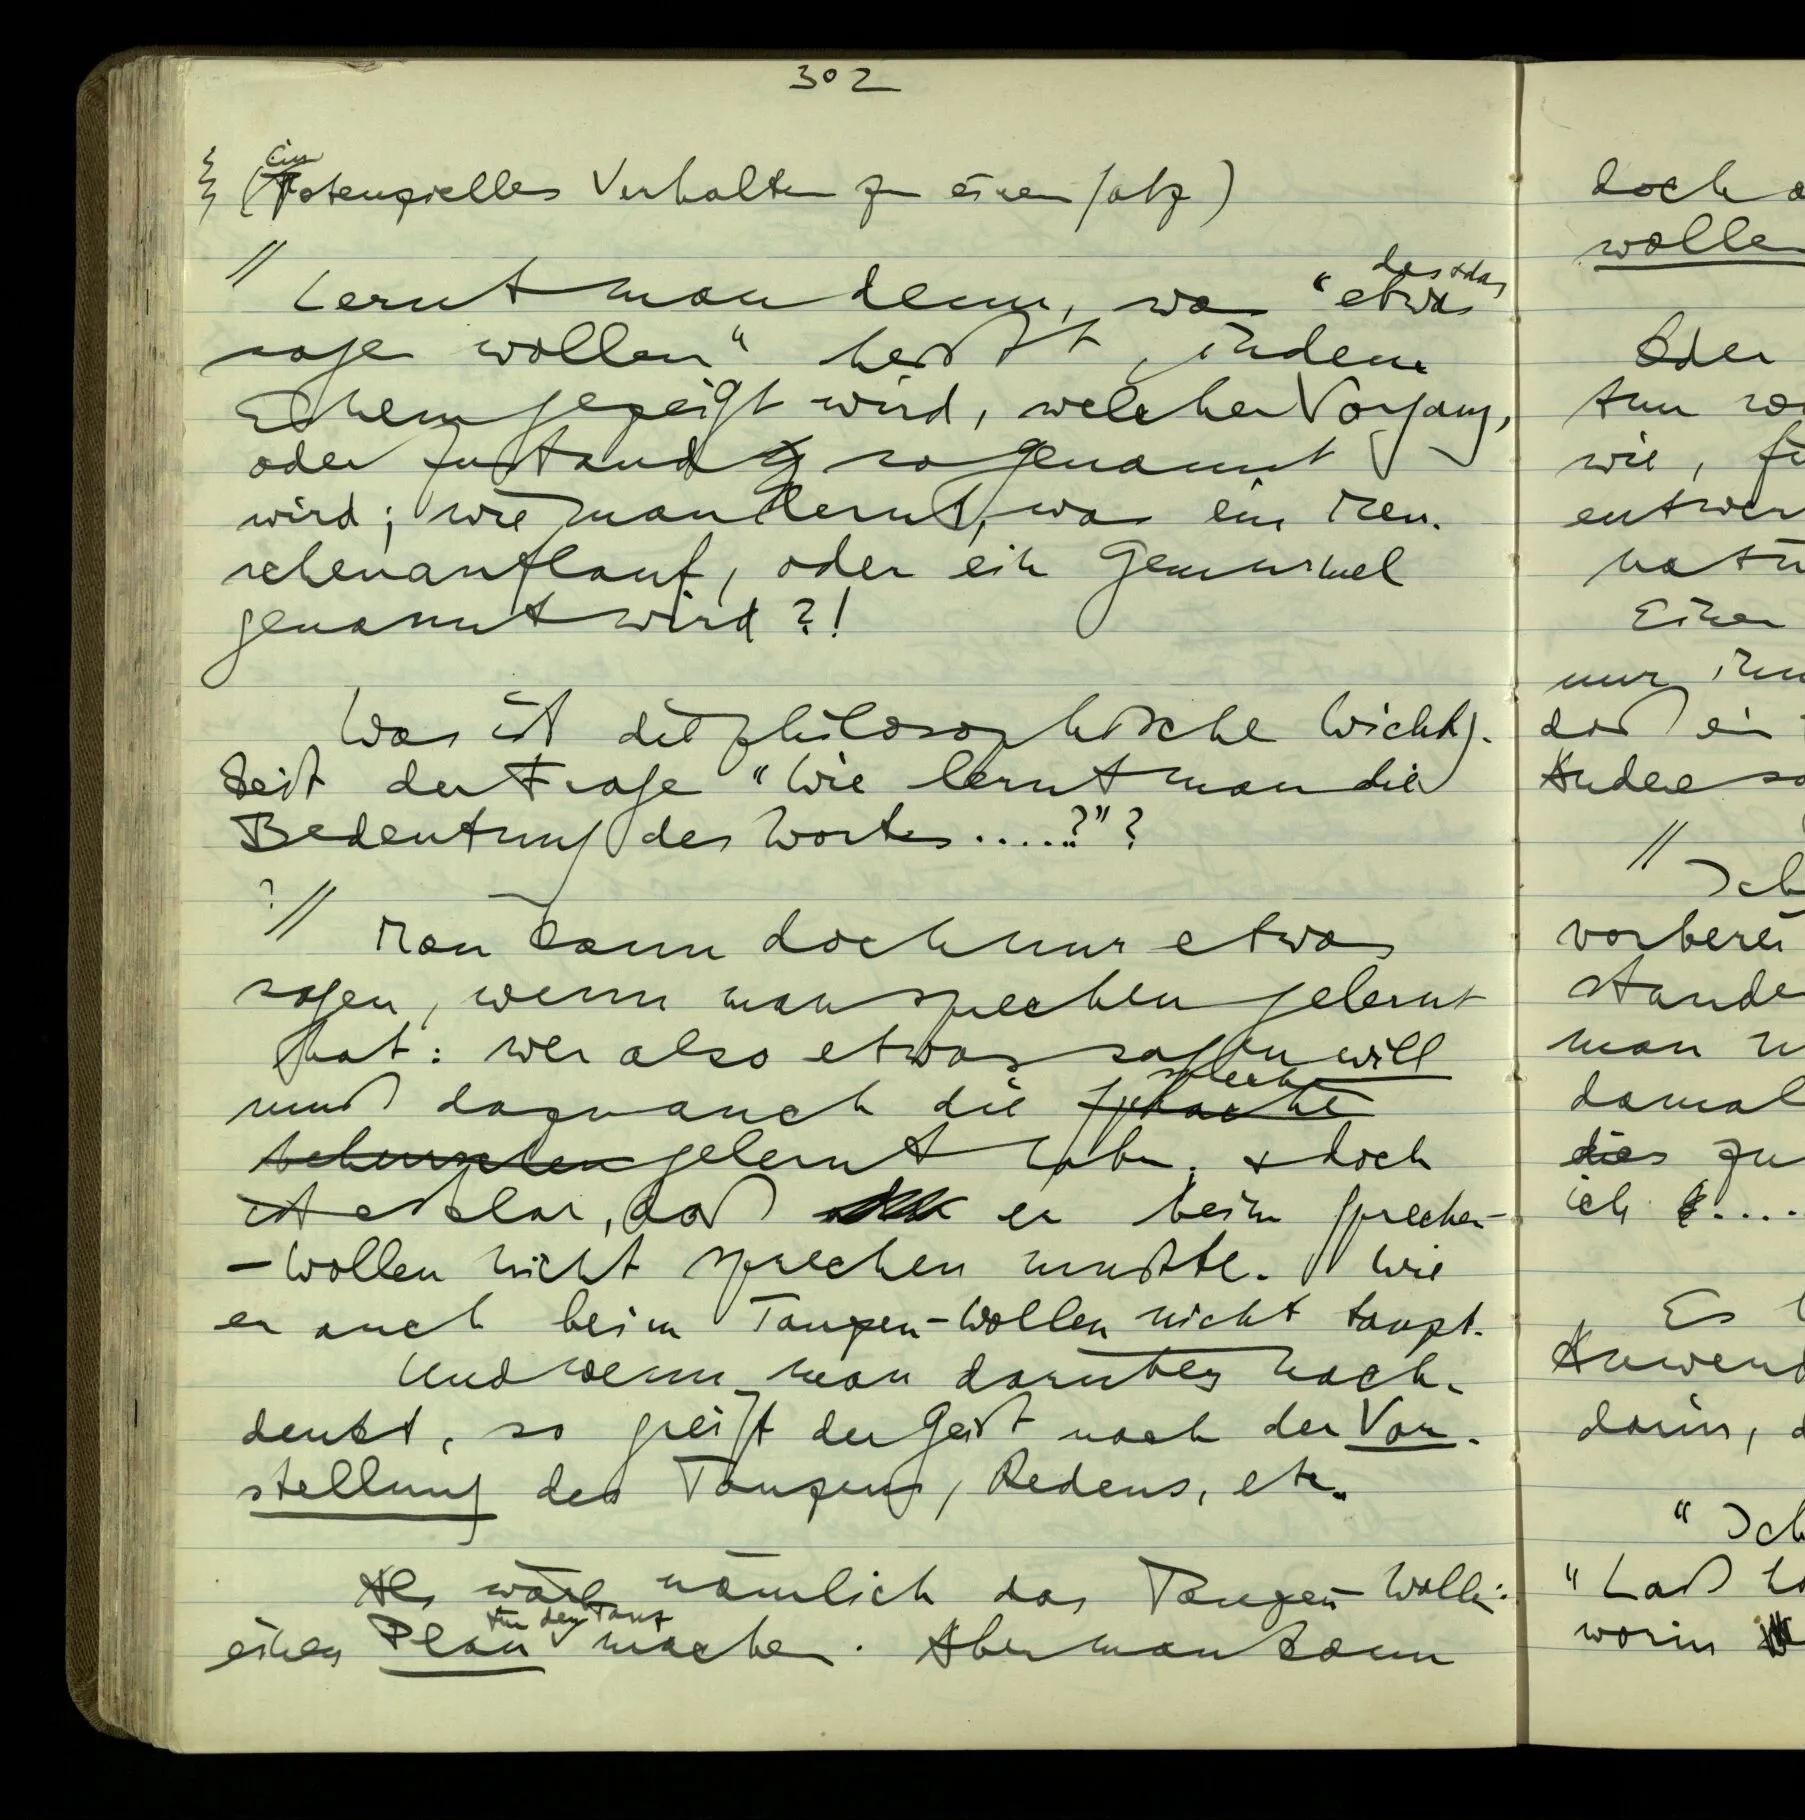 302
(Ein Potenzielles Verhalten zu einem Satz)
// Lernt man denn, was "etwas das & das
sagen wollen" heißt, indem
Einem gezeigt wird, welcher Vorgang,
oder Zustand so genannt
wird; wie man lernt, was ein Men-
schenauflauf, oder ein Gemurmel
genannt wird?!
Was ist die philosophische Wichtig-
keit der Frage "Wie lernt man die
Bedeutung des Wortes.....?"?
?// Man kann doch nur etwas
sagen, wenn man sprechen gelernt
hat: wer also etwas sagen will
muß dazu auch die Sprache sprechen
beherrschen gelernt haben, & doch
ist es klar, daß er beim Sprechen-
-Wollen nicht sprechen mußte. Wie
er auch beim Tanzen-Wollen nicht tanzt.
Und wenn man darüber nach-
denkt, so greift der Geist nach der Vor-
stellung des Tanzens, Redens, etc.
Als wäre nämlich das Tanzen-Wollen:
einen Plan für den Tanz machen. Aber man kann
doch
wollen
Oder
tun
wie,
Einen
nur
daß ein
Andere
//
Ich
man
dies zu
ich ....
Es
darin,
"Ich
"Laß
worin